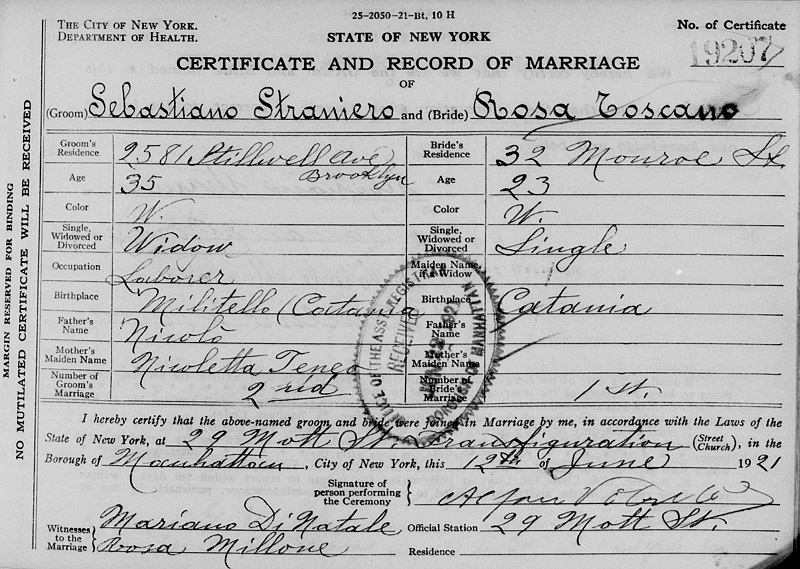 25-2050-21-Bt, 10 H
THE CITY OF NEW YORK.
DEPARTMENT OF HEALTH.
STATE OF NEW YORK
No. of Certificate
19207
CERTIFICATE AND RECORD OF MARRIAGE
OF
(Groom) Sebastiano Straniero and (Bride) Rosa Toscano
Groom's Residence 2581 Stillwell Ave Brooklyn Bride's Residence 32 Monroe St.
Age 35 Age 23
Color W. Color W.
Single, Widowed or Divorced Widow Single, Widowed or Divorced Single
Occupation Laborer Maiden Name if a Widow
Birthplace Militello (Catania Birthplace Catania
Father's Name Nicolò Father's Name
Mother's Maiden Name Nicoletta Mother's Maiden Name
Number of Groom's Marriage 2nd Number of Bride's Marriage 1 st.
I hereby certify that the above-named groom and bride were joined in Marriage by me, in accordance with the Laws of the
State of New York, at 29 Mott St. Transfiguration (Street Church), in the
Borough of Manhattan, City of New York, this 12th of June 1921
Signature of person performing the Ceremony
Witnesses to the Marriage Mariano Di Natale Official Station 29 Mott St.
Rosa Millone Residence
MARGIN RESERVED FOR BINDING
NO MUTILATED CERTIFICATE WILL BE RECEIVED
OFFICE OF THE ASS. REGISTRAR
RECEIVED
BOROUGH OF MANHATTAN